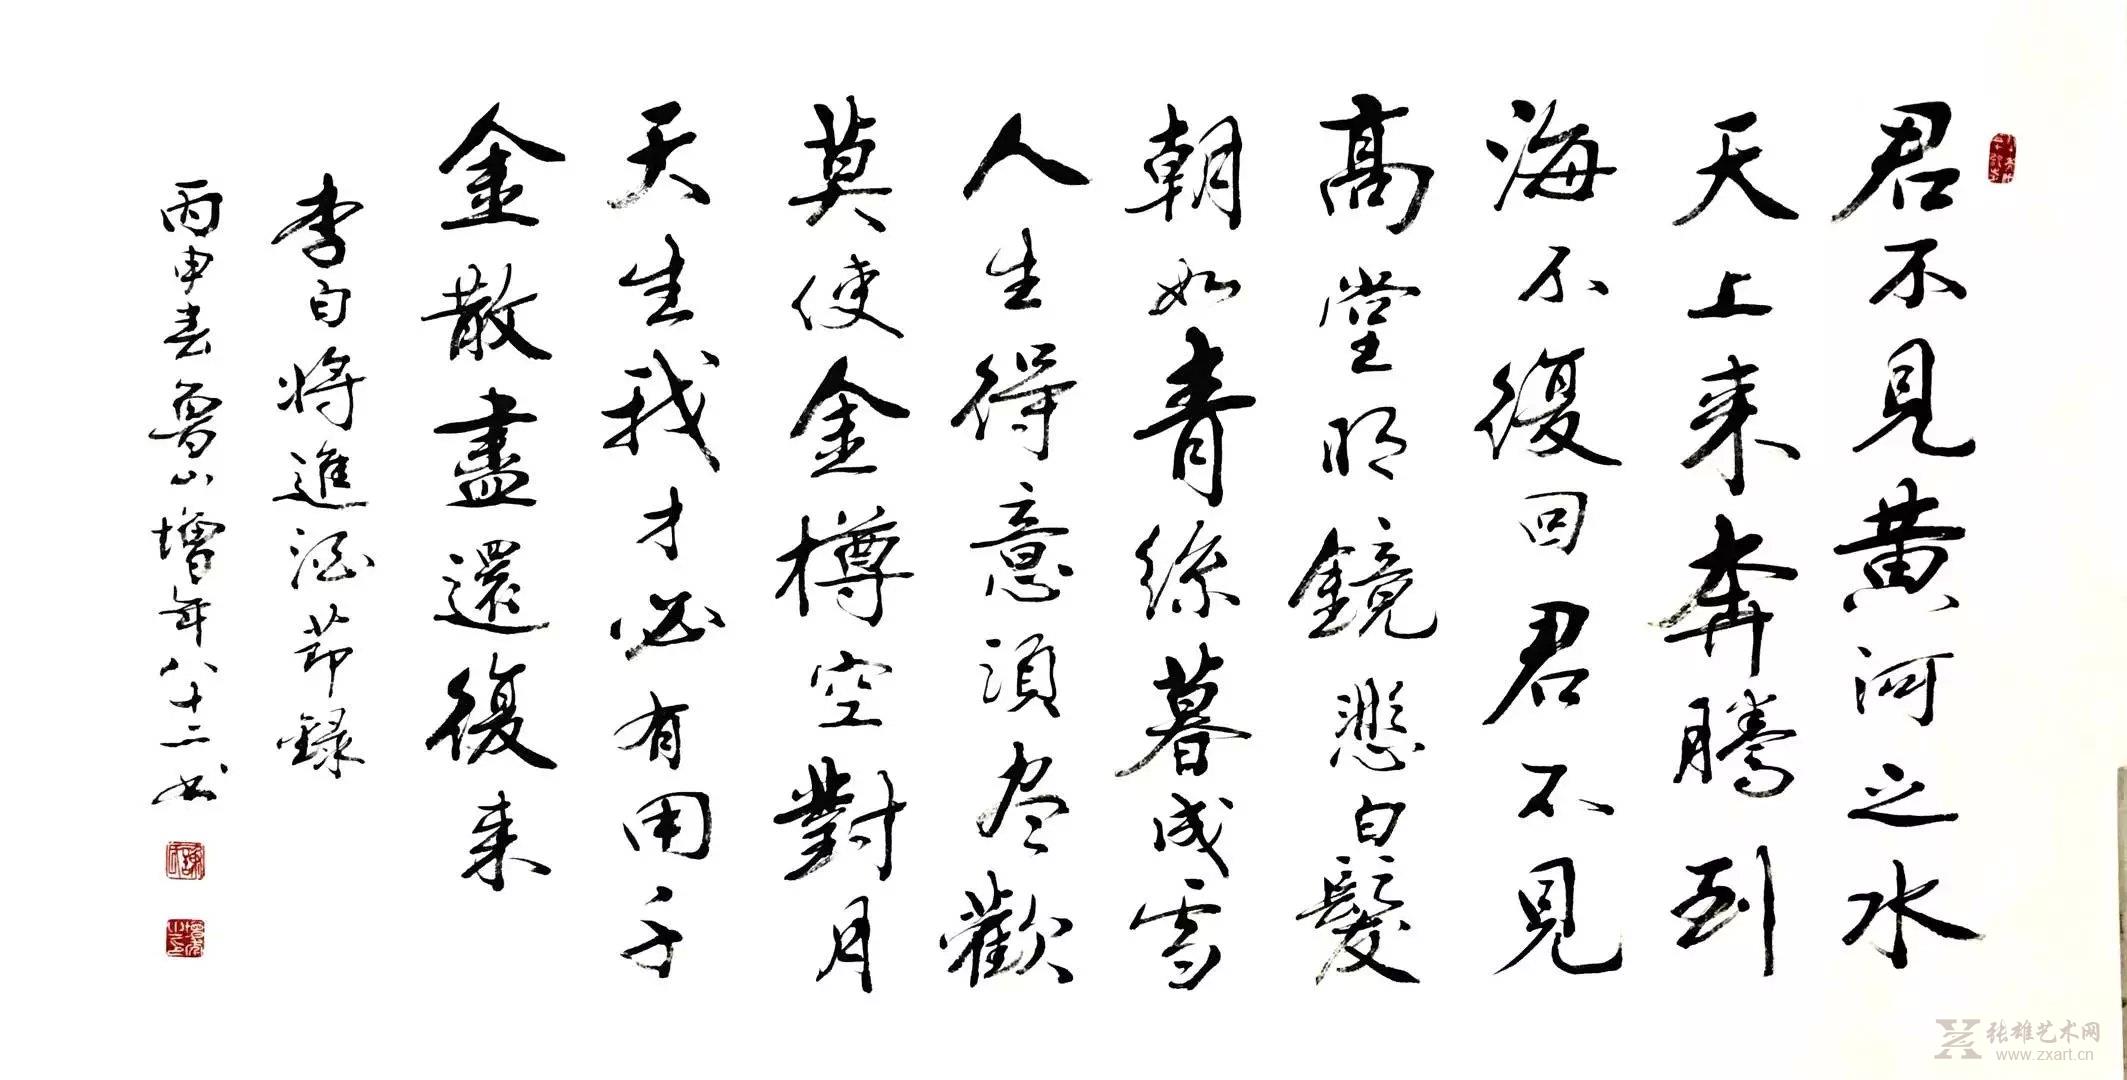 君不見黄河之水
天上来奔騰到
海不復回君不見
高堂明鏡悲白髮
朝如青絲暮成雪
人生得意須尽歡
莫使金樽空對月
天生我才必有用千
金散盡還復来
李白将進酒节録
丙申春魯山增年八十二书
张雄艺术网
www.zxart.cn